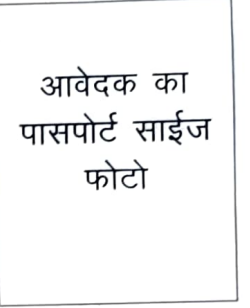 आवेदक का
पासपोर्ट साईज
फोटो